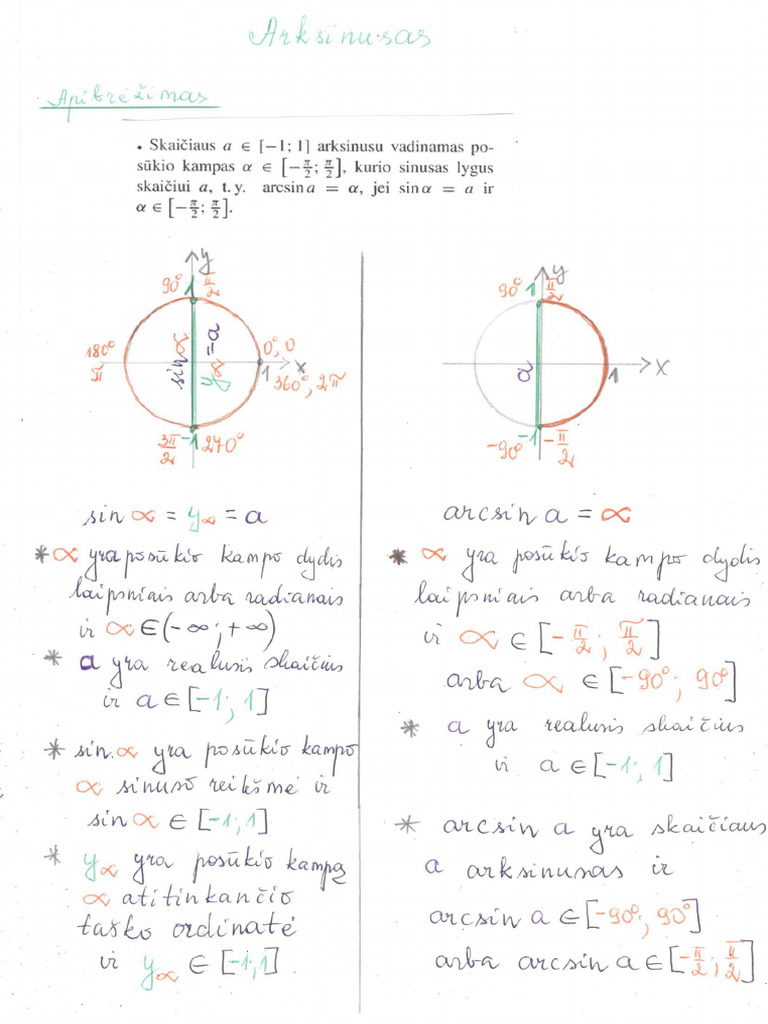 Arksinusas
Apibrėžimas
• Skaičiaus a ∈ [−1; 1] arksinusu vadinamas po-
sūkio kampas α ∈ [−π/2; π/2], kurio sinusas lygus
skaičiui a, t. y. arcsin a = α, jei sin α = a ir
α ∈ [−π/2; π/2].
y
90° 1 π/2
180°
π
sin α
yα = a
0°, 0
1
x
360°, 2π
3π/2 -1 270°
sin α = yα = a
* α yra posūkio kampo dydis
laipsniais arba radianais
ir α ∈ (-∞; +∞)
* a yra realusis skaičius
ir a ∈ [-1; 1]
* sin α yra posūkio kampo
α sinuso reikšmė ir
sin α ∈ [-1; 1]
* yα yra posūkio kampą
α atitinkančio
taško ordinatė
ir yα ∈ [-1; 1]
y
90° 1 π/2
a
1
x
-90° -1 -π/2
arcsin a = α
* α yra posūkio kampo dydis
laipsniais arba radianais
ir α ∈ [-π/2; π/2]
arba α ∈ [-90°; 90°]
* a yra realusis skaičius
ir a ∈ [-1; 1]
* arcsin a yra skaičiaus
a arksinusas ir
arcsin a ∈ [-90°; 90°]
arba arcsin a ∈ [-π/2; π/2]